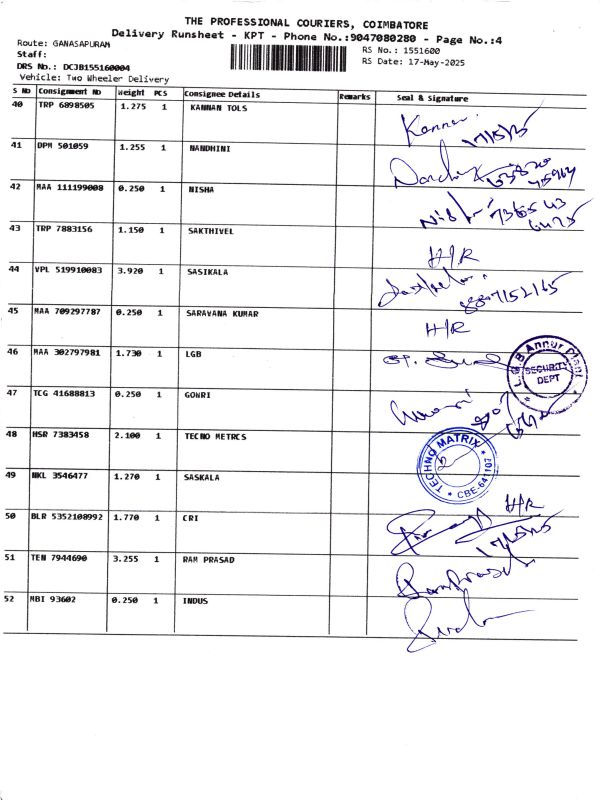 THE PROFESSIONAL COURIERS, COIMBATORE
Delivery Runsheet - KPT - Phone No.:9047080280 - Page No.:4
Route: GANASAPURAM
RS No.: 1551600
Staff:
DRS No.: DCJB155160004
RS Date: 17-May-2025
Vehicle: Two Wheeler Delivery
S No Consignment No Weight PCS Consignee Details Remarks Seal & Signature
40 TRP 6898505 1.275 1 KANNAN TOLS
17/5/25
41 DPM 501059 1.255 1 NANDHINI
42 MAA 111199008 0.250 1 NISHA
43 TRP 7883156 1.150 1 SAKTHIVEL
H/R
44 VPL 519910083 3.920 1 SASIKALA
45 MAA 709297787 0.250 1 SARAVANA KUMAR
H/R
46 MAA 302797981 1.730 1 LGB
L.G.B Annur Plant
SECURITY
DEPT
47 TCG 41688813 0.250 1 GOWRI
48 HSR 7383458 2.100 1 TECNO METRCS
TECHNO MATRIX
CBE-641107
49 NKL 3546477 1.270 1 SASKALA
H/R
50 BLR 5352108992 1.770 1 CRI
51 TEN 7944690 3.255 1 RAM PRASAD
RamPrasad
52 MBI 93602 0.250 1 INDUS